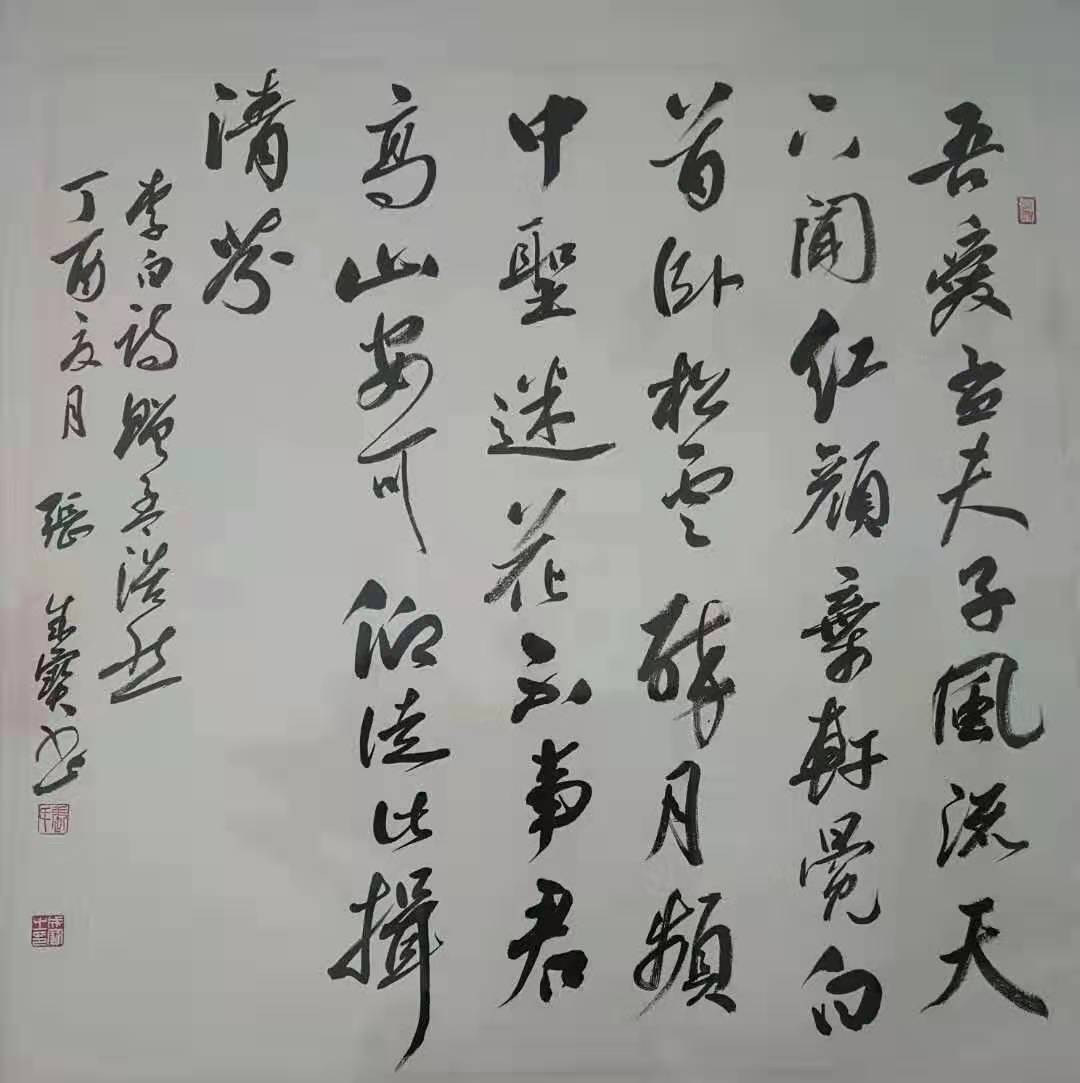 吾愛孟夫子風流天
下聞紅顏棄軒冕白
首卧松雲醉月頻
中聖迷花不事君
高山安可仰徒此揖
清芬
李白詩贈孟浩然
丁酉夏月 張成寶書